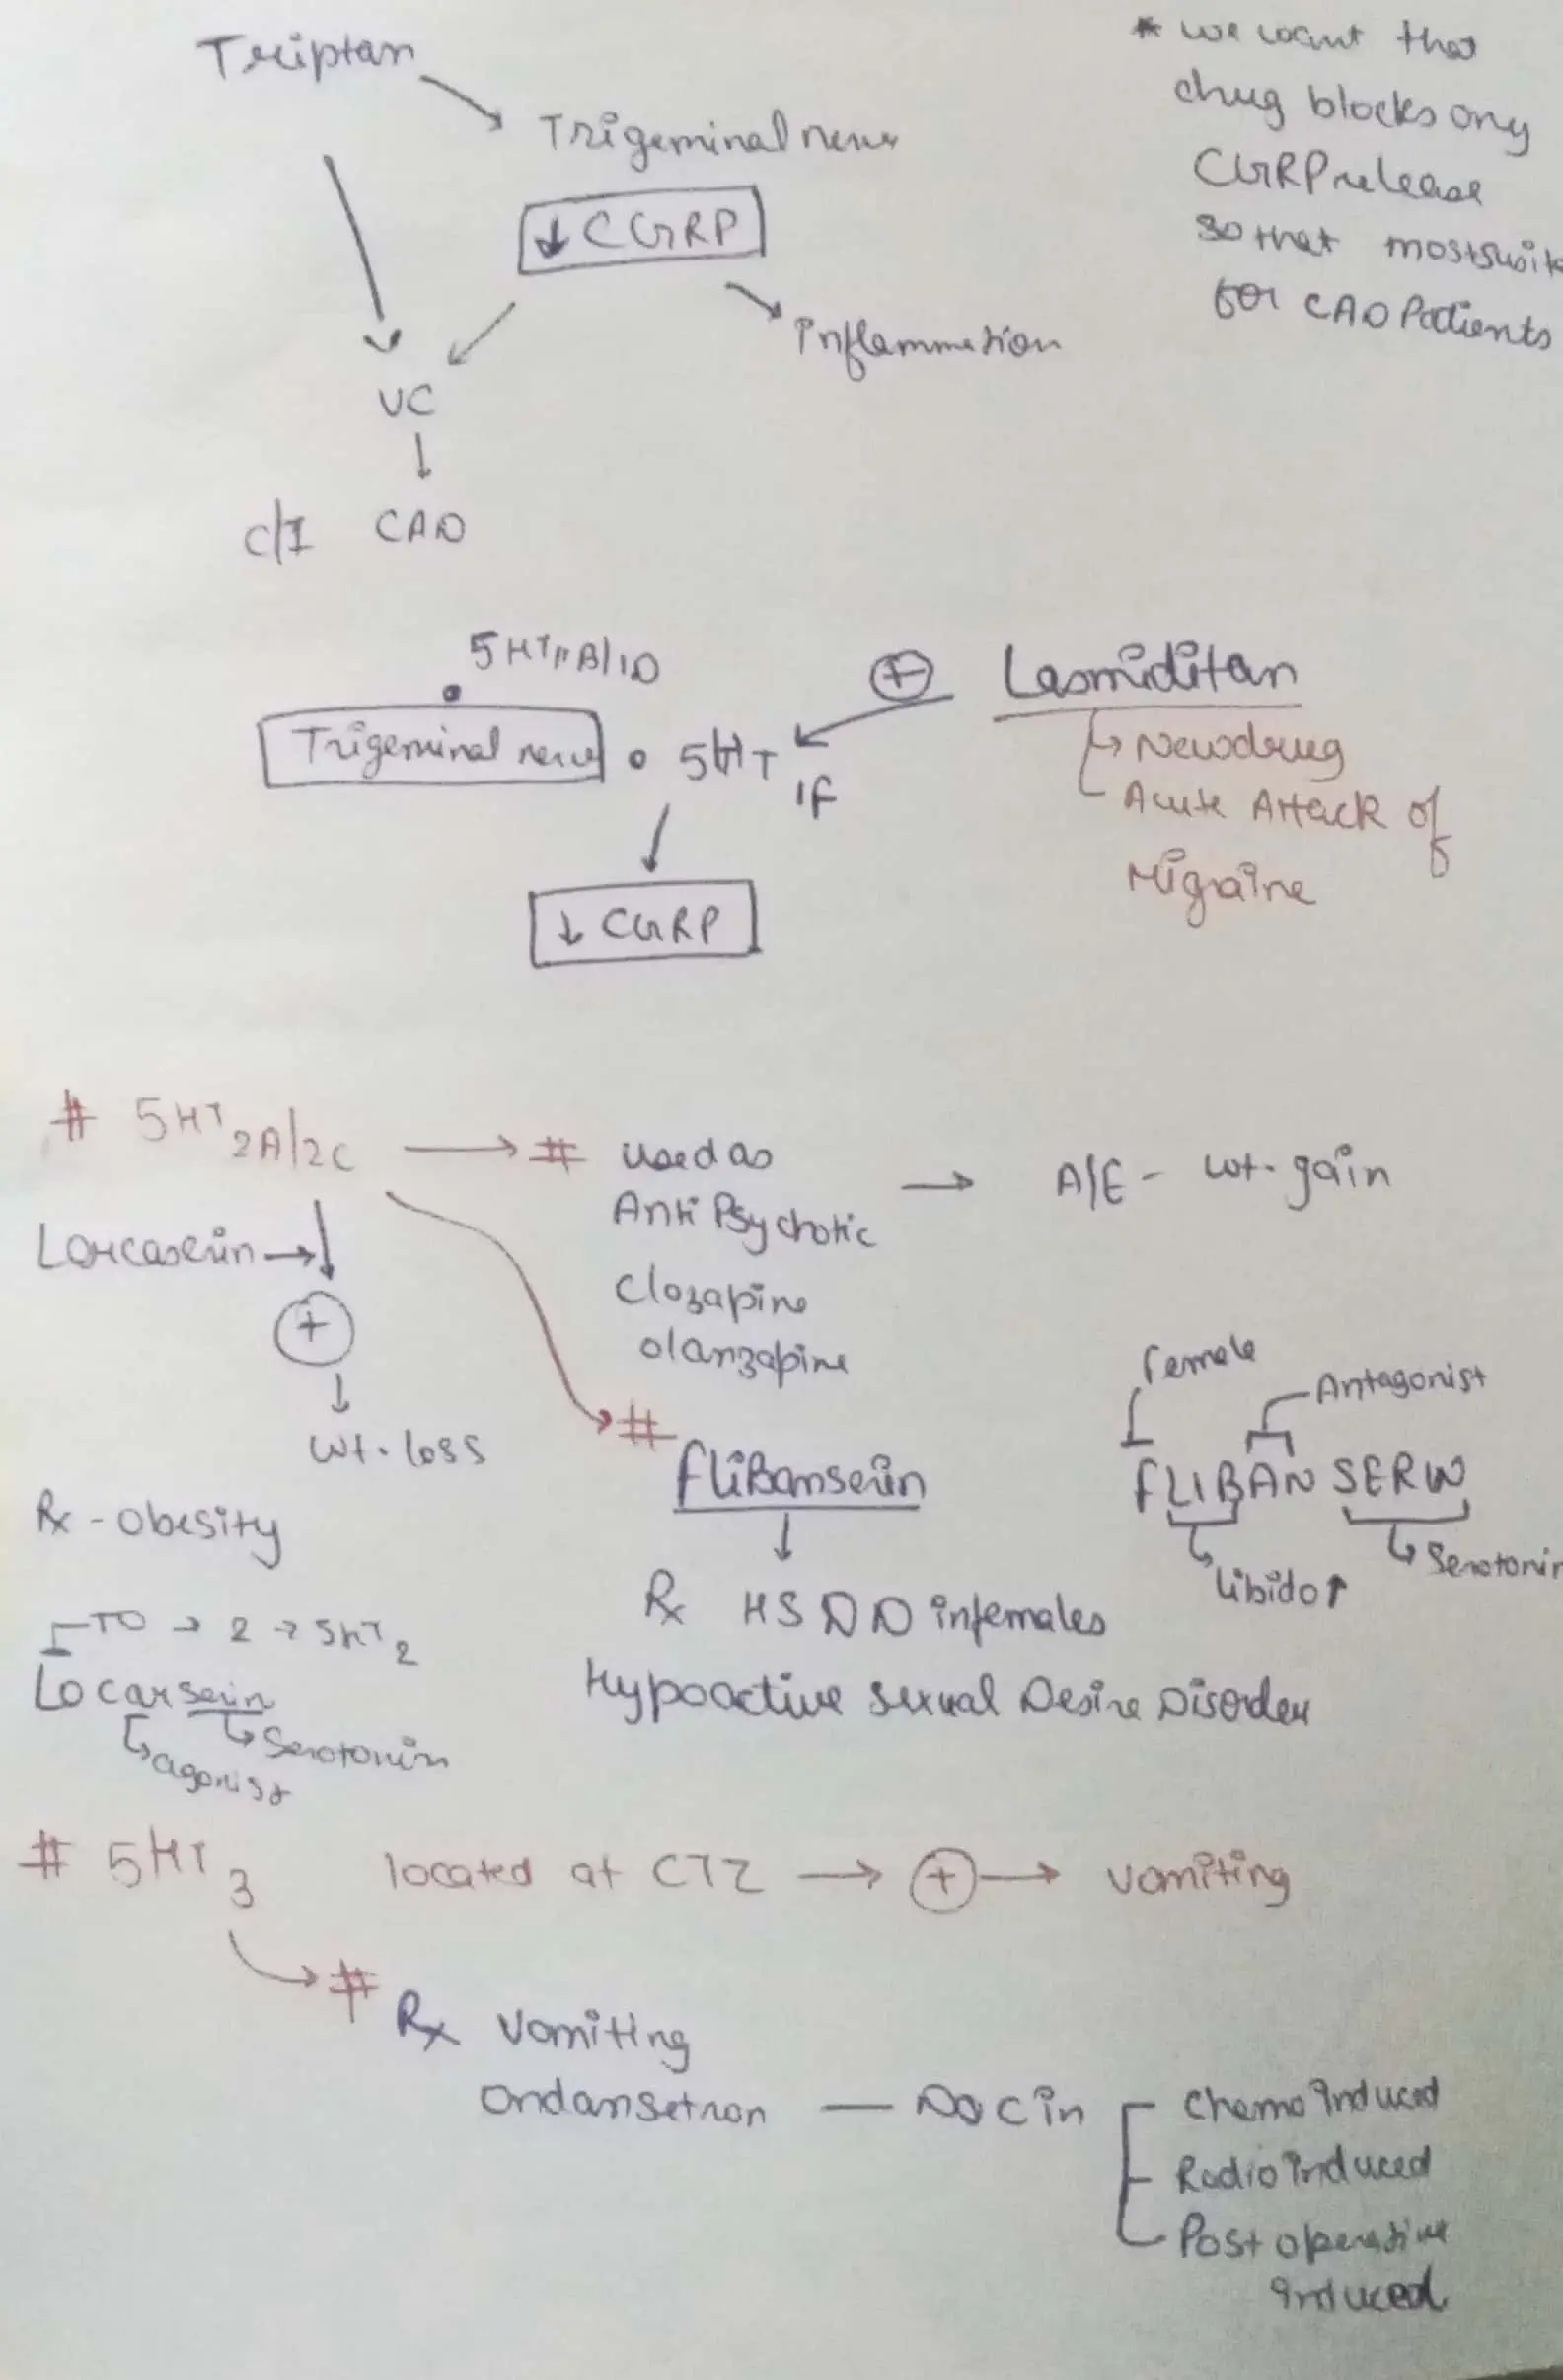 Triptan
Trigeminal nerve
↓ CGRP
Inflammation
VC
↓
C/I CAD
* we want that
drug blocks only
CGRP release
so that most suit
for CAD Patients
5HT1B/1D
Trigeminal nerve • 5HT 1F
⊕ Lasmiditan
↳ New drug
Acute Attack of
Migraine
↓ CGRP
# 5HT 2A/2C → # used as → A/E - wt. gain
Anti Psychotic
Clozapine
Olanzapine
Lorcaserin →
⊕
↓
wt. loss
Rx - obesity
TO → 2 → 5HT2
Locarserin
↳ Serotonin
↳ agonist
# Flibanserin
↓
Rx HSDD in females
Hypoactive Sexual Desire Disorder
Female
Antagonist
FLIBAN SERIN
↳ Serotonin
↳ libido↑
# 5HT3 located at CTZ → ⊕ → vomiting
→ # Rx Vomiting
Ondansetron — DOC in
Chemo induced
Radio induced
Post operative
induced